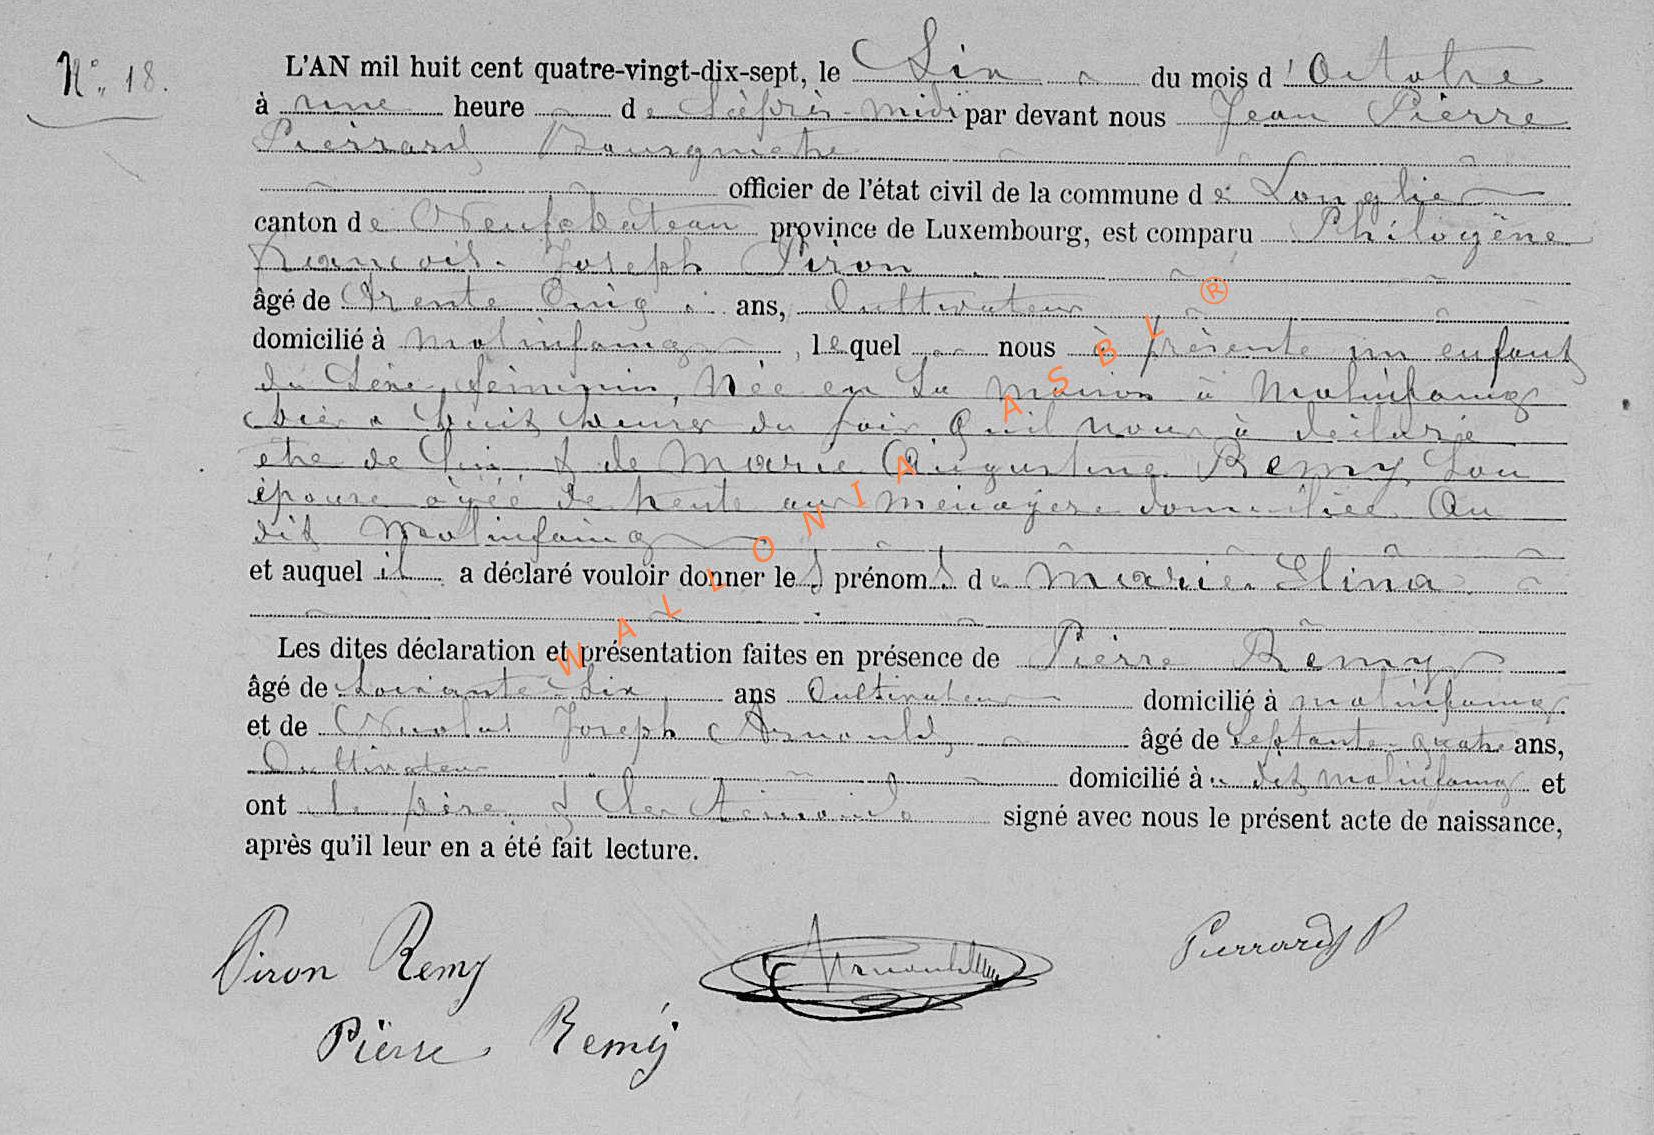 N° 18.
L'AN mil huit cent quatre-vingt-dix-sept, le Six du mois d'Octobre
à une heure de L'après-midi par devant nous Jean Pierre
Pierrard Bourgmetre
officier de l'état civil de la commune de Longlier
canton de Neufchateau province de Luxembourg, est comparu Philogène
François Joseph Piron
âgé de Trente Cinq ans, Cultivateur
domicilié à Molinfaing, lequel nous à présenté un enfant
du Sexe féminin, Née en Sa maison à Molinfaing
hier a huit heures du soir Qu'il nous à déclaré
etre de Lui & de Marie Augustine Remy Son
épouse agéé de trente ans menagère domiciliée Au
dit Molinfaing
et auquel il a déclaré vouloir donner les prénoms de Marie Elina
Les dites déclaration et présentation faites en présence de Pierre Remy
âgé de Soixante Six ans Cultivateur domicilié à Molinfaing
et de Nicolas Joseph Arnould, âgé de Septante-quatre ans,
Cultivateur domicilié à u dit Molinfaing et
ont le père & les témoins signé avec nous le présent acte de naissance,
après qu'il leur en a été fait lecture.
Piron Remy
Arnould
Pierrard P
Pïerre Remÿ
WALLONIA ASBL ®